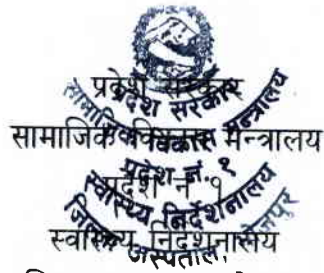 प्रदेश सरकार
सामाजिक विकास मन्त्रालय
प्रदेश नं १
स्वास्थ्य निर्देशनालय
प्रदेश सरकार
सामाजिक विकास मन्त्रालय
प्रदेश नं. १
स्वास्थ्य निर्देशनालय
जिल्ला अस्पताल,